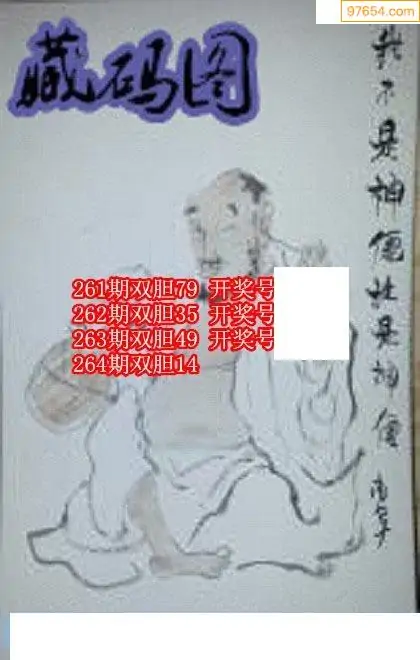 97654.com
藏码图
261期双胆79 开奖号
262期双胆35 开奖号
263期双胆49 开奖号
264期双胆14
不是神仙
是神仙